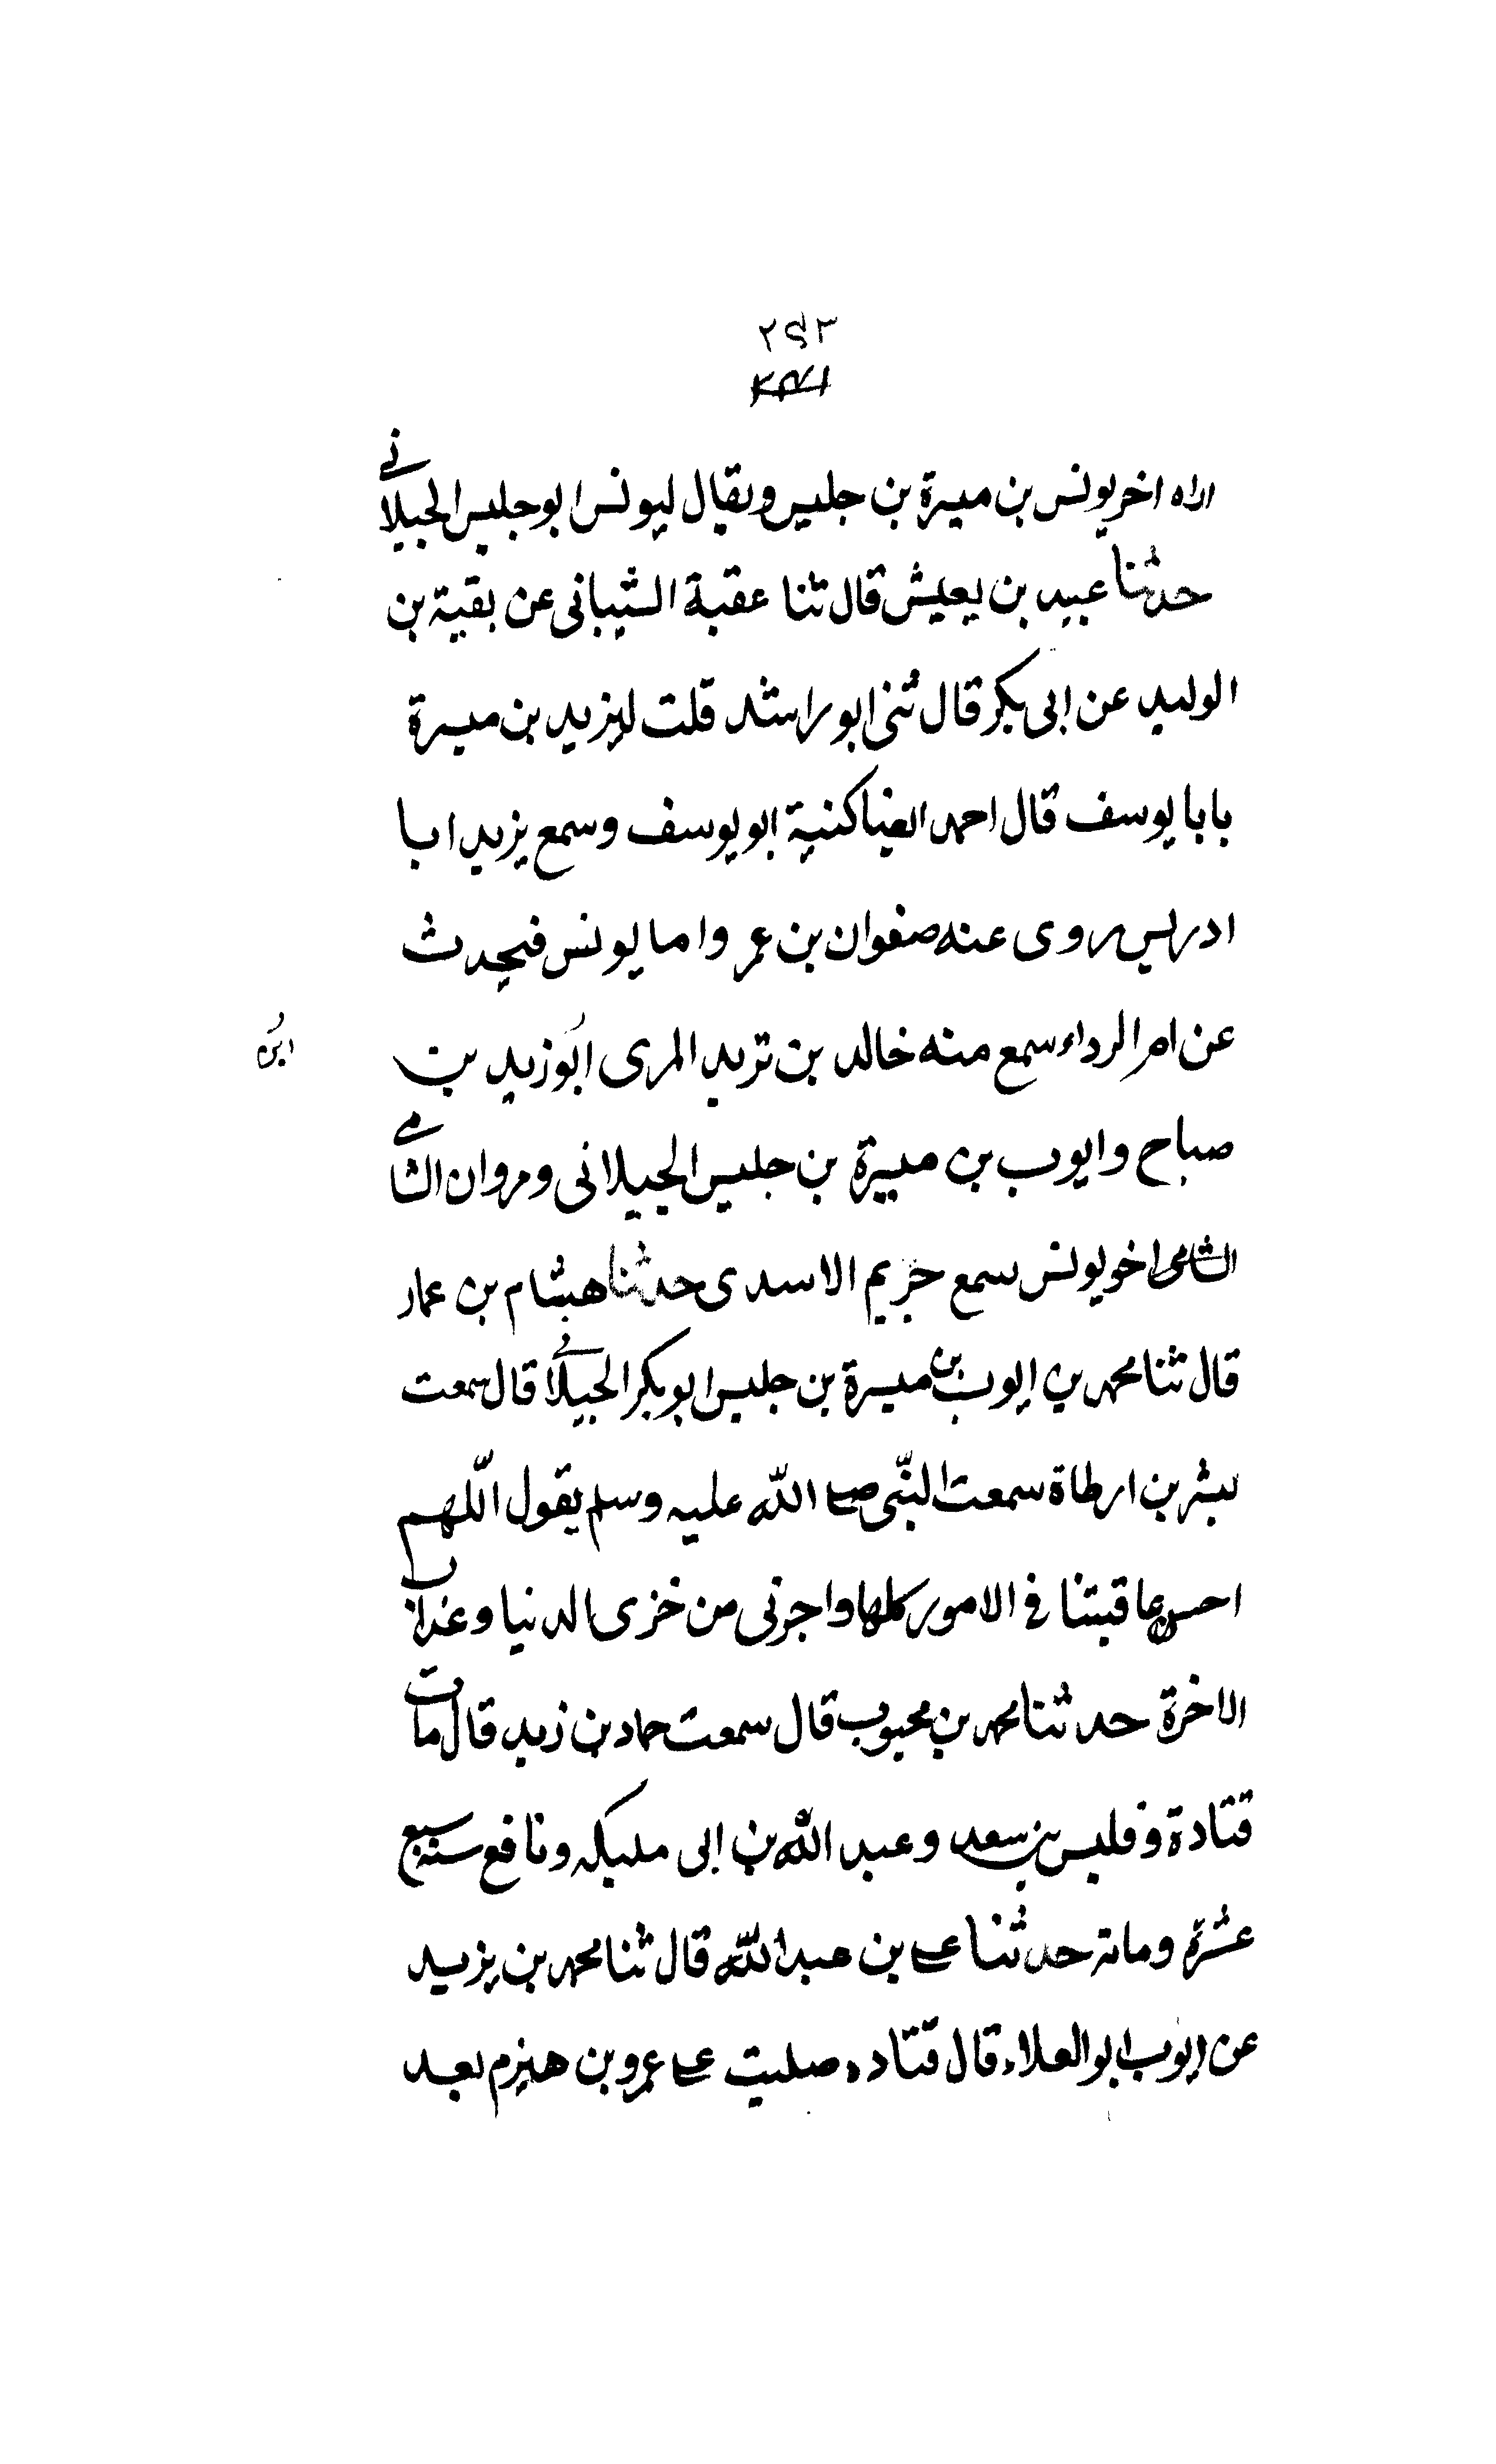 ٢٩٣
اراه اخر يونس بن ميسرة بن جليس ويقال ليونس ابو جليس الجيلانى
حدثنا عبيد بن يعيش قال ثنا عقبة الشيبانى عن بقية بن
الوليد عن ابى بكر قال ثنى ابو راشد قلت ليزيد بن ميسرة
يا با يوسف قال احمد ايضا كنية ابو يوسف وسمع يزيد ابا
ادريس روى عنه صفوان بن عمر واما يونس فيحدث
عن ام الرداء سمع منه خالد بن تزيد المرى ابو زيد بن
ابن
صباح وايوب بن ميسرة بن جليس الجيلانى ومروان الشامى
الشامى اخو يونس سمع خريم الاسدى حدثنا هشام بن عمار
قال ثنا محمد بن ايوب بن ميسرة بن جليس ابو بكر الجيلانى قال سمعت
بشر بن ارطاة سمعت النبّى صلى اللّه عليه وسلم يقول اللّهم
احسن عاقبتنا فى الامور كلها واجرنى من خزى الدنيا وعذاب
الاخرة حدثنا محمد بن محبوب قال سمعت حماد بن زيد قال مات
قتادة وقليس بن سعد وعبد اللّه بن ابى مليكه ونافع سنة سبع
عشرة ومائة حدثنا على بن عبد اللّه قال ثنا محمد بن يزيد
عن ايوب ابو العلاء قال قتاده صليت على عمرو بن هيزم بعد